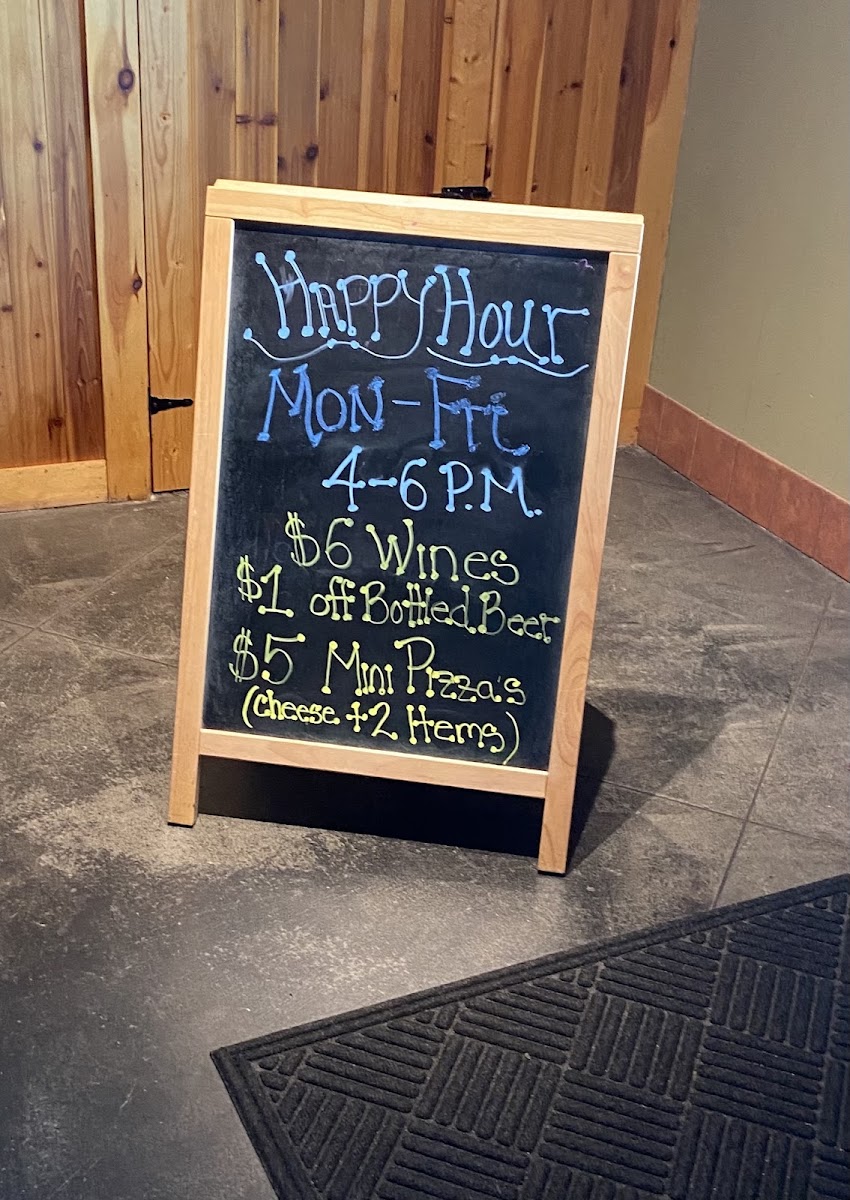 Happy Hour
Mon-Fri
4-6 P.M.
$6 Wines
$1 off Bottled Beer
$5 Mini Pizza's
(cheese +2 Items)